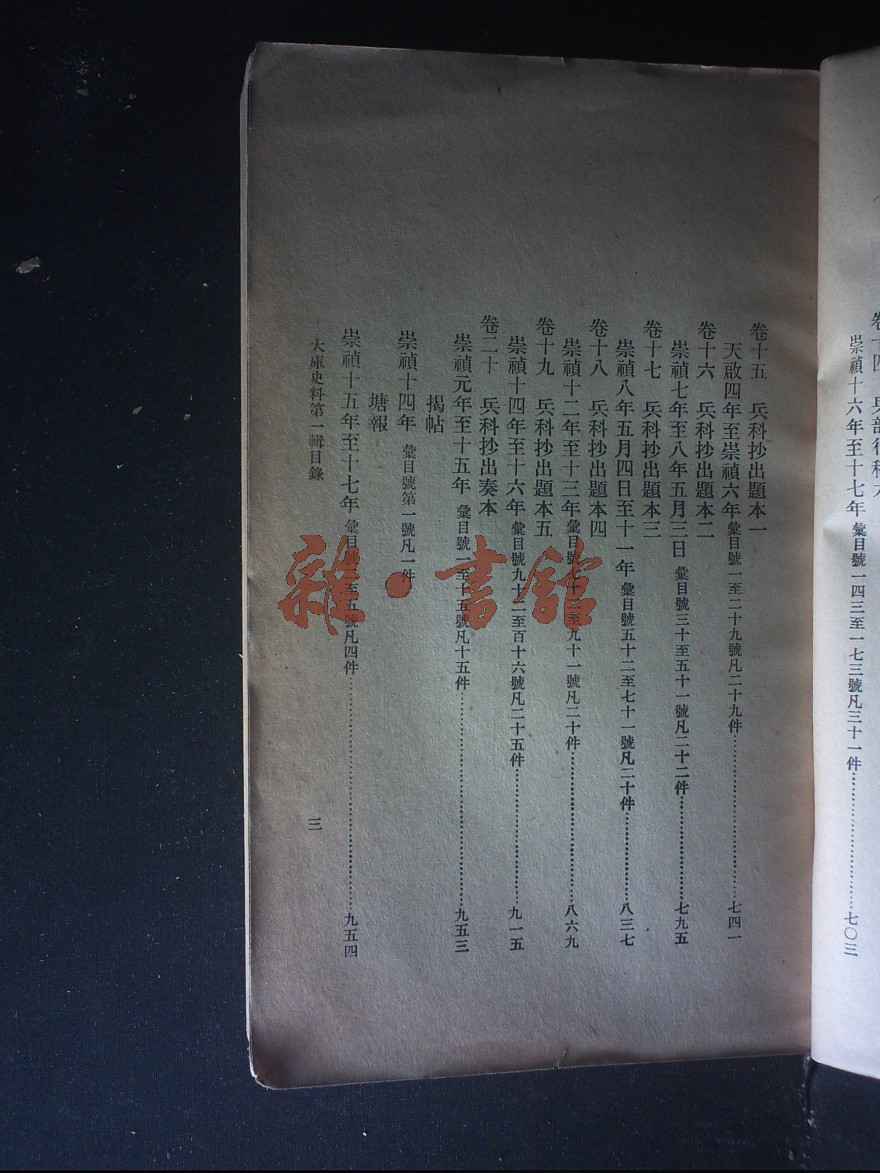 崇禎十六年至十七年 彙目號一四三至一七三號凡三十一件……七〇三
卷十五 兵科抄出題本一
天啟四年至崇禎六年 彙目號一至二十九號凡二十九件……七四一
卷十六 兵科抄出題本二
崇禎七年至八年五月三日 彙目號三十至五十一號凡二十二件……七九五
卷十七 兵科抄出題本三
崇禎八年五月四日至十一年 彙目號五十二至七十一號凡二十件……八三七
卷十八 兵科抄出題本四
崇禎十二年至十三年 彙目號 至九十一號凡二十件……八六九
卷十九 兵科抄出題本五
崇禎十四年至十六年 彙目號九十二至百十六號凡二十五件……九一五
卷二十 兵科抄出奏本
崇禎元年至十五年 彙目號一至十五號凡十五件……九五三
揭帖
崇禎十四年 彙目號第一號凡一件
塘報
崇禎十五年至十七年 彙目 至五號凡四件……九五四
大庫史料第一輯目錄
三
雜·書館